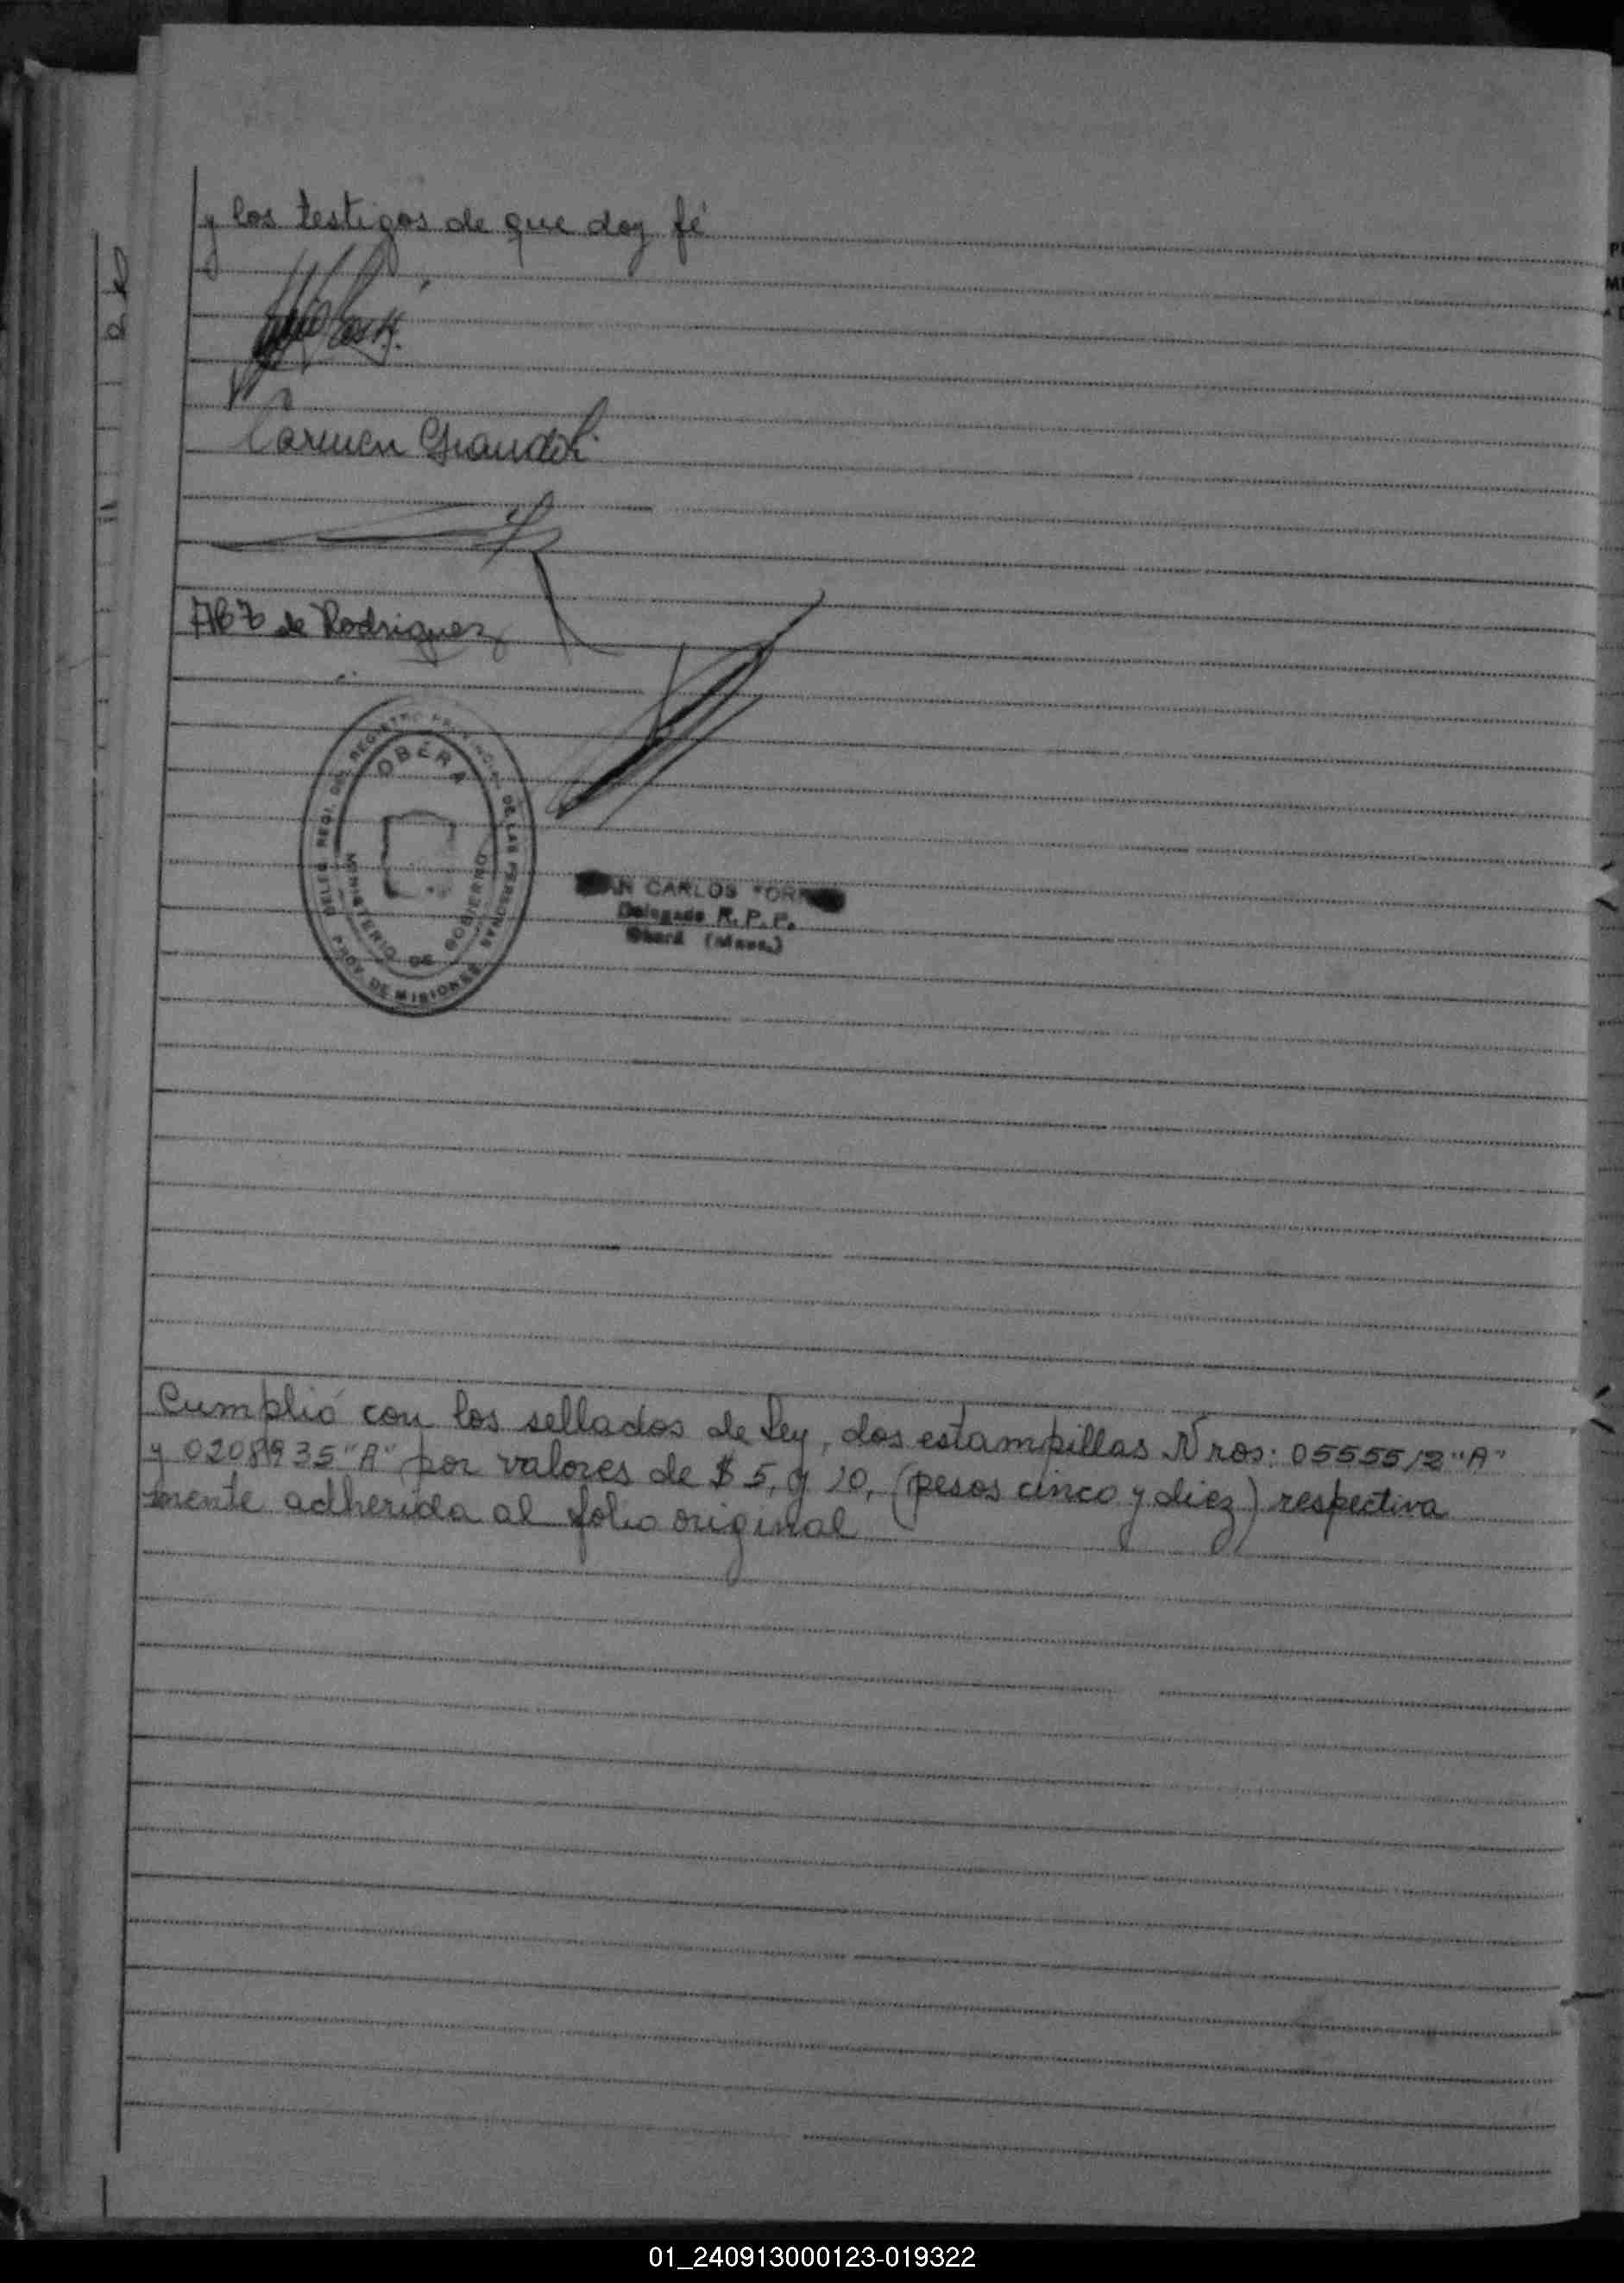 y los testigos de que doy fé
Carmen
ABZ de Rodriguez
DELEG. REGI. DEL REGISTRO PROVINCIAL DE LAS PERSONAS
OBERA
MINISTERIO DE GOBIERNO
PROV. DE MISIONES
CARLOS
Delegado R. P. P.
Oberá (Mnes.)
Cumplió con los sellados de Ley, dos estampillas Nros: 0555512 "A"
y 0208935 "A" por valores de $ 5, y 10, (pesos cinco y diez) respectiva
mente adherida al folio original
01_240913000123-019322